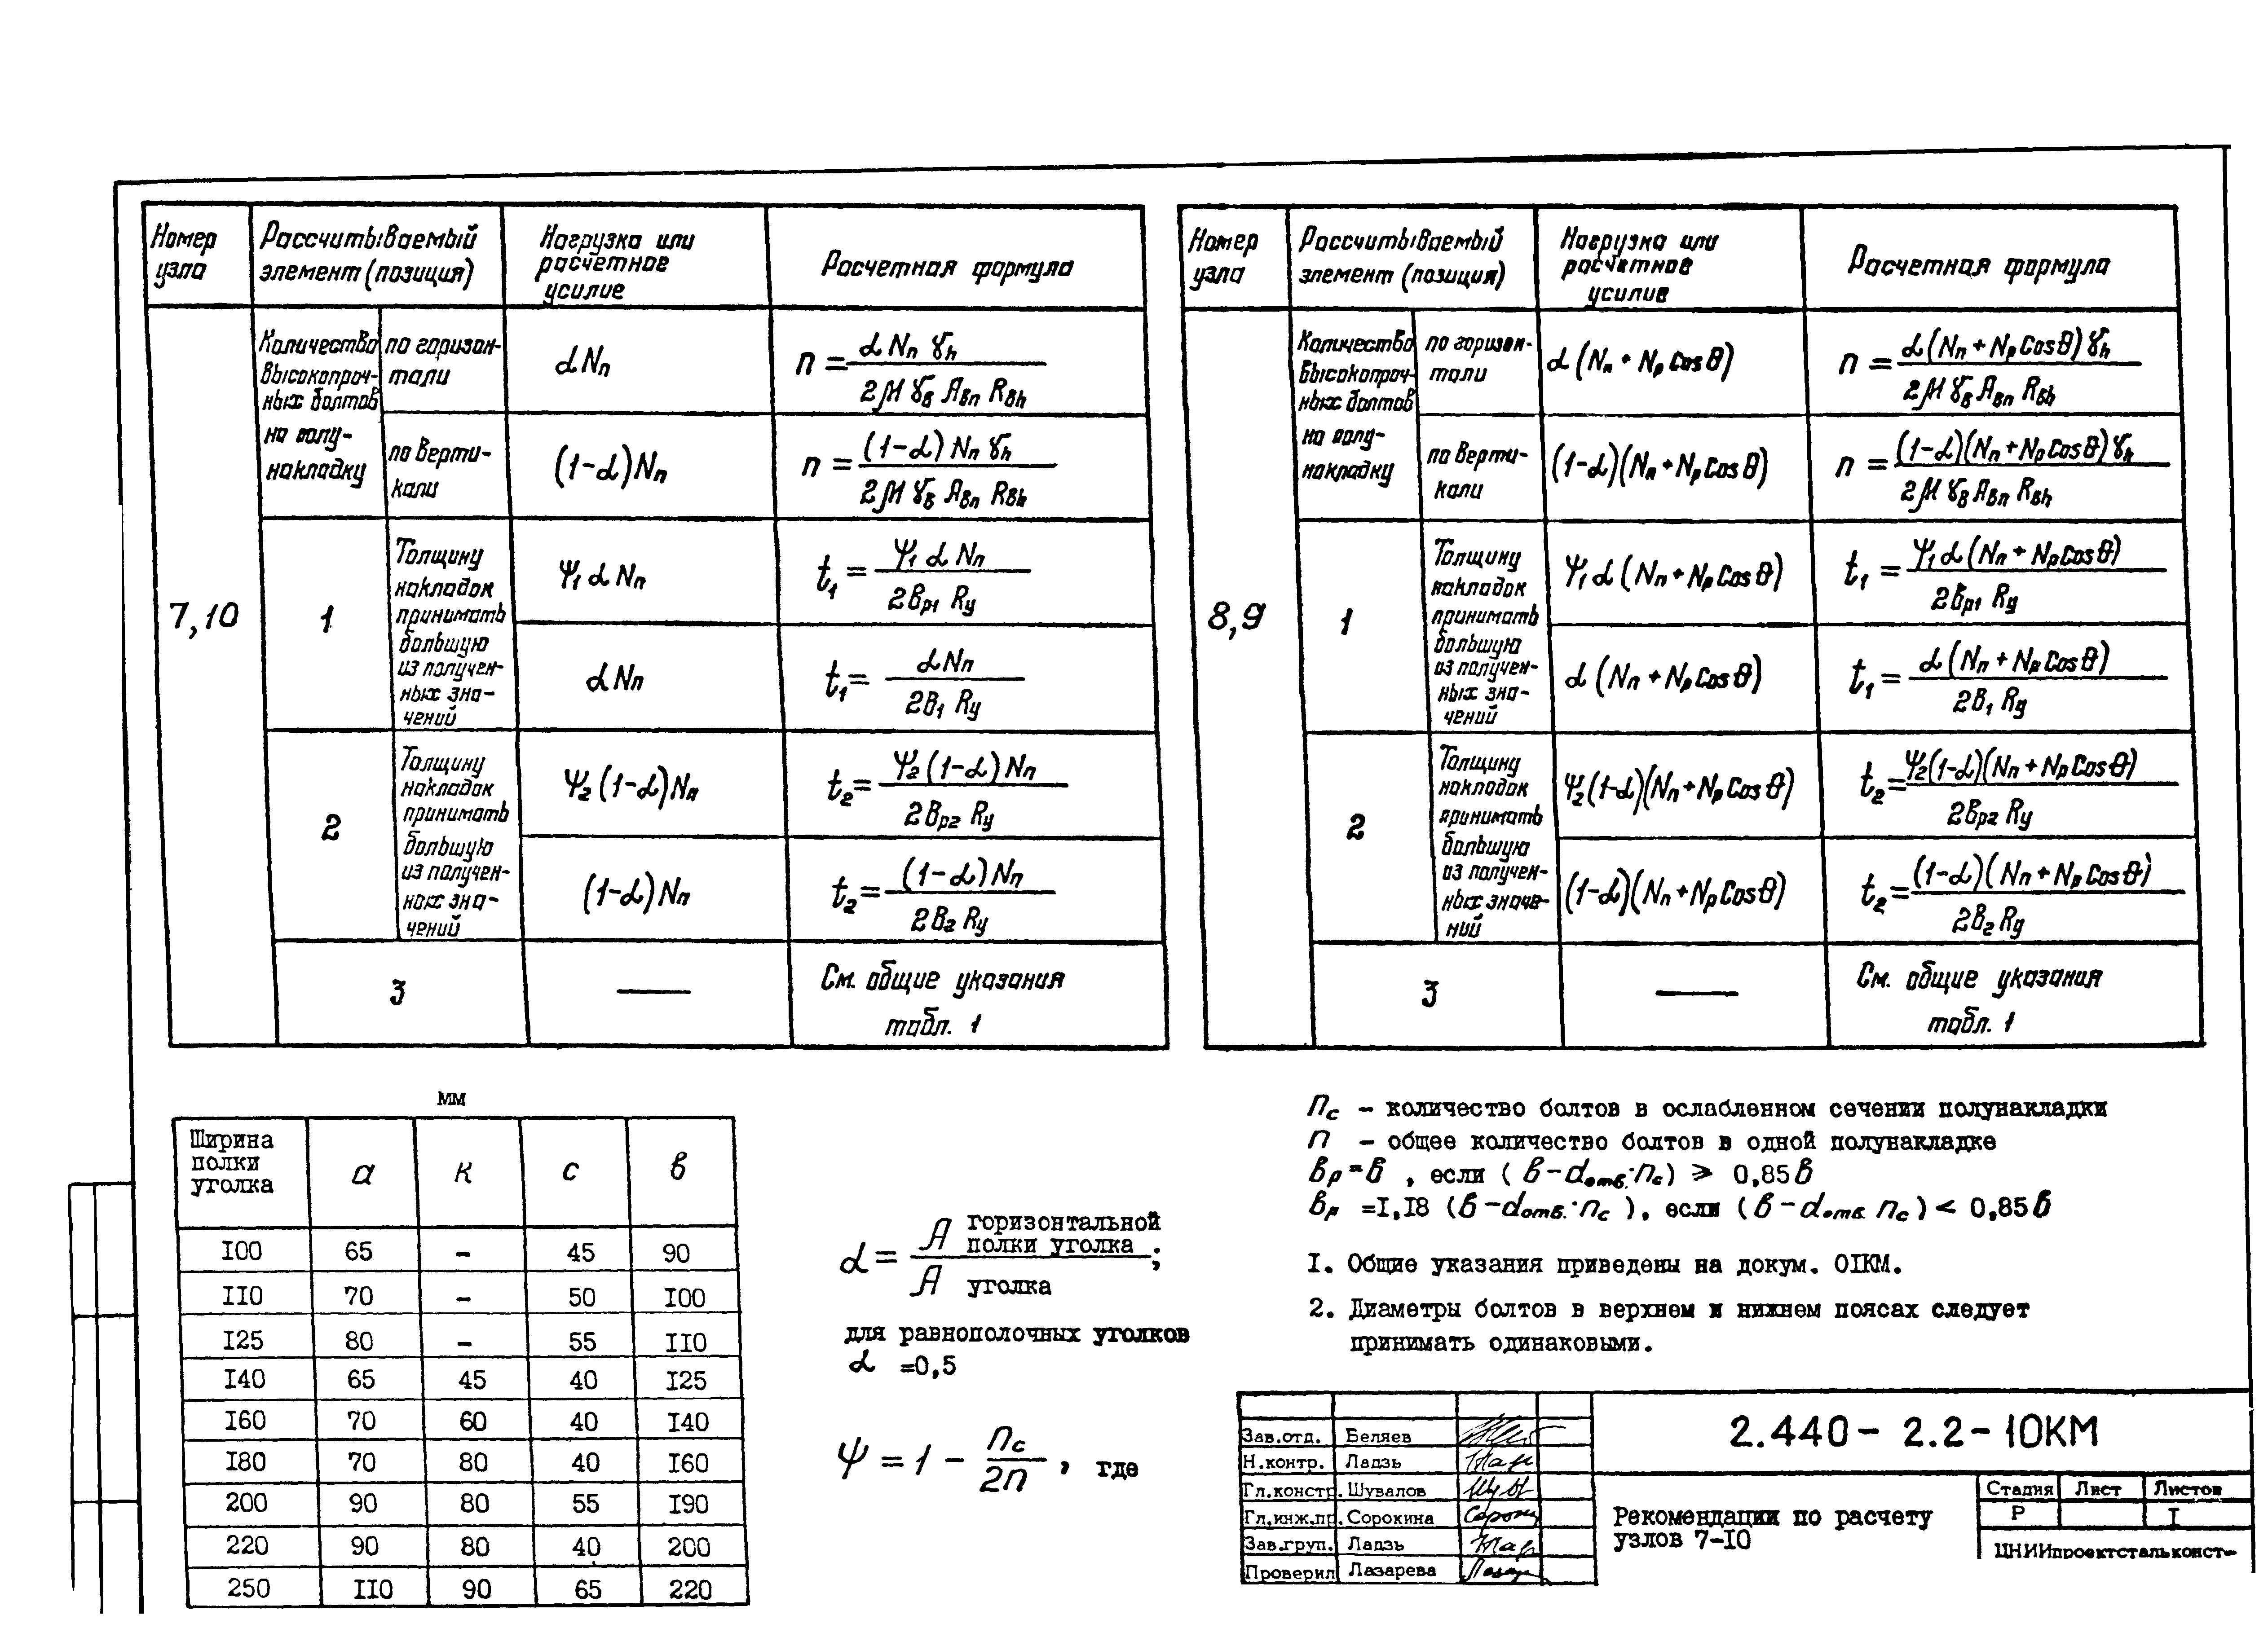 Номер узла
Рассчитываемый элемент (позиция)
Нагрузка или расчетное усилие
Расчетная формула
7,10
Количество высокопроч-
ных болтов
на полу-
накладку
по горизон-
тали
αNп
n = αNпγh / 2μγвAвпRвh
по верти-
кали
(1-α)Nп
n = (1-α)Nпγh / 2μγвAвпRвh
1
Толщину
накладок
принимать
большую
из получен-
ных зна-
чений
ψ1αNп
t1 = ψ1αNп / 2вр1Rу
αNп
t1 = αNп / 2в1Rу
2
Толщину
накладок
принимать
большую
из получен-
ных зна-
чений
ψ2(1-α)Nп
t2 = ψ2(1-α)Nп / 2вр2Rу
(1-α)Nп
t2 = (1-α)Nп / 2в2Rу
3
—
См. общие указания
табл. 1
Номер узла
Рассчитываемый элемент (позиция)
Нагрузка или расчетное усилие
Расчетная формула
8,9
Количество
высокопроч-
ных болтов
на полу-
накладку
по горизон-
тали
α(Nп+NрCosθ)
n = α(Nп+NрCosθ)γh / 2μγвAвпRвh
по верти-
кали
(1-α)(Nп+NрCosθ)
n = (1-α)(Nп+NрCosθ)γh / 2μγвAвпRвh
1
Толщину
накладок
принимать
большую
из получен-
ных зна-
чений
ψ1α(Nп+NрCosθ)
t1 = ψ1α(Nп+NрCosθ) / 2вр1Rу
α(Nп+NрCosθ)
t1 = α(Nп+NрCosθ) / 2в1Rу
2
Толщину
накладок
принимать
большую
из получен-
ных значе-
ний
ψ2(1-α)(Nп+NрCosθ)
t2 = ψ2(1-α)(Nп+NрCosθ) / 2вр2Rу
(1-α)(Nп+NрCosθ)
t2 = (1-α)(Nп+NрCosθ) / 2в2Rу
3
—
См. общие указания
табл. 1
мм
Ширина полки уголка а к с в
100 65 - 45 90
110 70 - 50 100
125 80 - 55 110
140 65 45 40 125
160 70 60 40 140
180 70 80 40 160
200 90 80 55 190
220 90 80 40 200
250 110 90 65 220
α = A горизонтальной полки уголка / A уголка ;
для равнополочных уголков
α =0,5
ψ = 1 - nс / 2n , где
nс - количество болтов в ослабленном сечении полунакладки
n - общее количество болтов в одной полунакладке
вр=в , если (в-dотв.·nс) ⩾ 0,85в
вр =1,18 (в-dотв.·nс), если (в-dотв. nс) < 0,85в
1. Общие указания приведены на докум. 01КМ.
2. Диаметры болтов в верхнем и нижнем поясах следует
принимать одинаковыми.
2.440- 2.2-10КМ
Зав.отд. Беляев
Н.контр. Ладзь
Гл.констр. Шувалов
Гл.инж.пр. Сорокина
Зав.груп. Ладзь
Проверил Лазарева
Рекомендации по расчету
узлов 7-10
Стадия Лист Листов
Р 1
ЦНИИпроектстальконст-